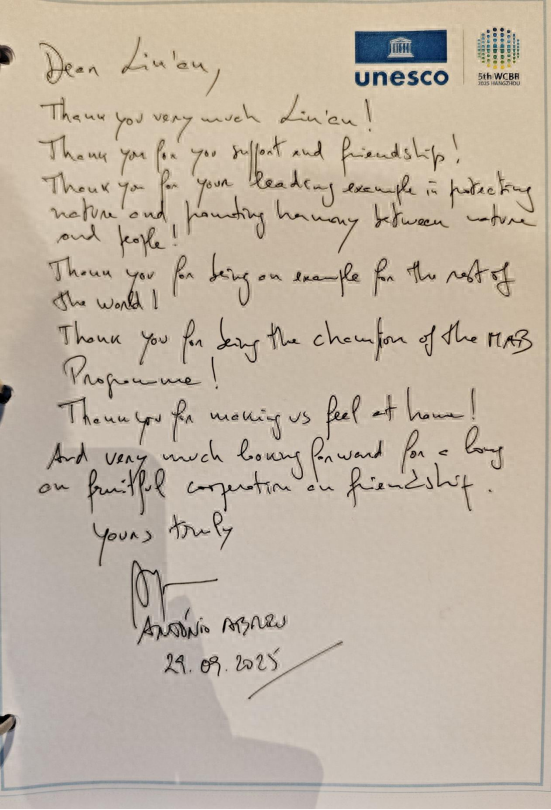 unesco
5th WCBR
2025 HANGZHOU
Dear Lin'an,
Thank you very much Lin'an!
Thank you for you support and friendship!
Thank you for your leading example in protecting
nature and promoting harmony between nature
and people!
Thank you for being an example for the rest of
the world!
Thank you for being the champion of the MAB
Programme!
Thank you for making us feel at home!
And very much looking forward for a long
an fruitful cooperation an friendship.
Yours truly
António Abreu
29.09.2025